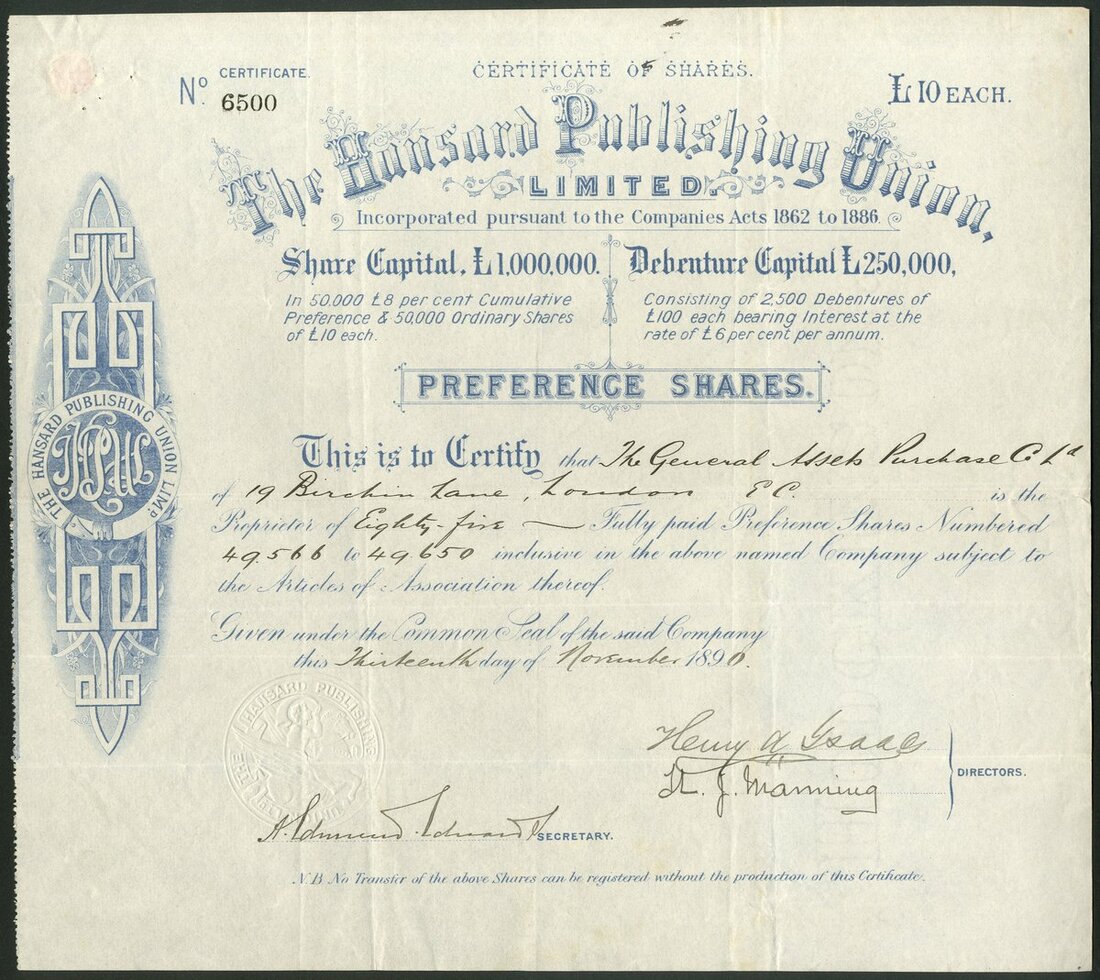 CERTIFICATE OF SHARES.
No. CERTIFICATE.
6500
£10 EACH.
The Hansard Publishing Union,
LIMITED.
Incorporated pursuant to the Companies Acts 1862 to 1886.
Share Capital, £1,000,000.
In 50.000 £8 per cent Cumulative
Preference & 50,000 Ordinary Shares
of £10 each.
Debenture Capital £250,000,
Consisting of 2,500 Debentures of
£100 each bearing Interest at the
rate of £6 per cent per annum.
PREFERENCE SHARES.
THE HANSARD PUBLISHING UNION LIMD
HPU
This is to Certify that The General Assets Purchase Co Ld
of 19 Birchin Lane, London E.C. is the
Proprietor of Eighty-five Fully paid Preference Shares Numbered
49.566 to 49.650 inclusive in the above named Company subject to
the Articles of Association thereof.
Given under the Common Seal of the said Company
this Thirteenth day of November 1890.
THE HANSARD PUBLISHING
Henry A Isaacs
H. J. Manning
DIRECTORS.
SECRETARY.
N.B. No Transfer of the above Shares can be registered without the production of this Certificate.